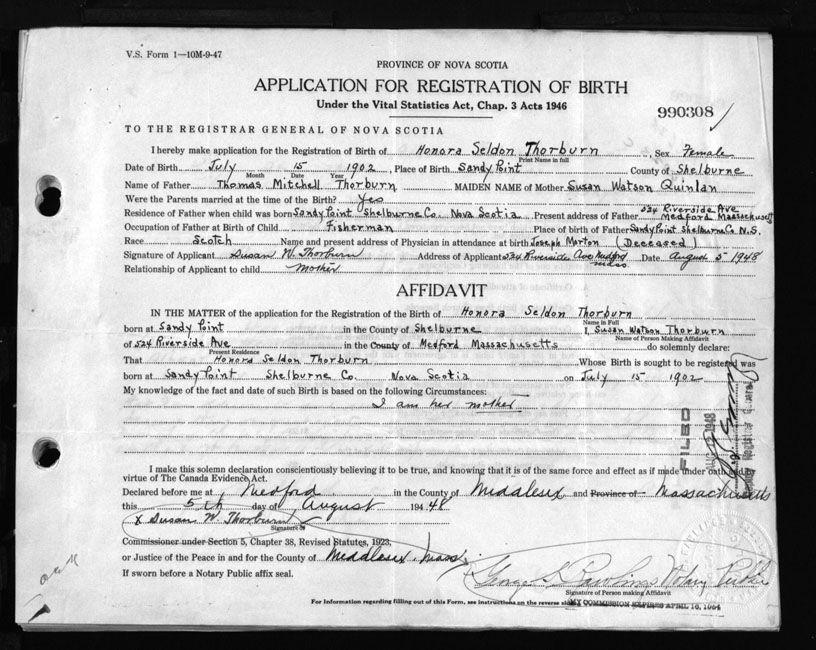 V.S. Form 1—10M-9-47
PROVINCE OF NOVA SCOTIA
APPLICATION FOR REGISTRATION OF BIRTH
Under the Vital Statistics Act, Chap. 3 Acts 1946
990308
TO THE REGISTRAR GENERAL OF NOVA SCOTIA
I hereby make application for the Registration of Birth of Honora Seldon Thorburn, Sex Female
Print Name in full
Date of Birth July 15 1902, Place of Birth Sandy Point County of Shelburne
Month Date Year
Name of Father Thomas Mitchell Thorburn MAIDEN NAME of Mother Susan Watson Quinlan
Were the Parents married at the time of the Birth? Yes
524 Riverside Ave
Residence of Father when child was born Sandy Point Shelburne Co. Nova Scotia Present address of Father Medford Massachusetts
Occupation of Father at Birth of Child Fisherman Place of birth of Father Sandy Point Shelburne Co N.S.
Race Scotch Name and present address of Physician in attendance at birth Joseph Morton (Deceased)
Signature of Applicant Susan W. Thorburn Address of Applicant 524 Riverside Ave Medford Mass. Date August 5 1948
Relationship of Applicant to child Mother
AFFIDAVIT
IN THE MATTER of the application for the Registration of the Birth of Honora Seldon Thorburn
Name in Full
born at Sandy Point in the County of Shelburne I, Susan Watson Thorburn
Name of Person Making Affidavit
of 524 Riverside Ave in the County of Medford Massachusetts do solemnly declare:
Present Residence
That Honora Seldon Thorburn Whose Birth is sought to be registered was
born at Sandy Point Shelburne Co. Nova Scotia on July 15 1902
My knowledge of the fact and date of such Birth is based on the following Circumstances:
I am her mother
FILED
1948
I make this solemn declaration conscientiously believing it to be true, and knowing that it is of the same force and effect as if made under oath and by
virtue of The Canada Evidence Act.
Declared before me at Medford in the County of Middlesex and Province of Massachusetts
this 5th day of August 1948
x Susan W. Thorburn
Signature
Commissioner under Section 5, Chapter 38, Revised Statutes, 1923,
or Justice of the Peace in and for the County of Middlesex, Mass.
If sworn before a Notary Public affix seal.
George Notary Public
Signature of Person making Affidavit
For Information regarding filling out of this Form, see instructions on the reverse side
MY COMMISSION EXPIRES APRIL 16, 1954